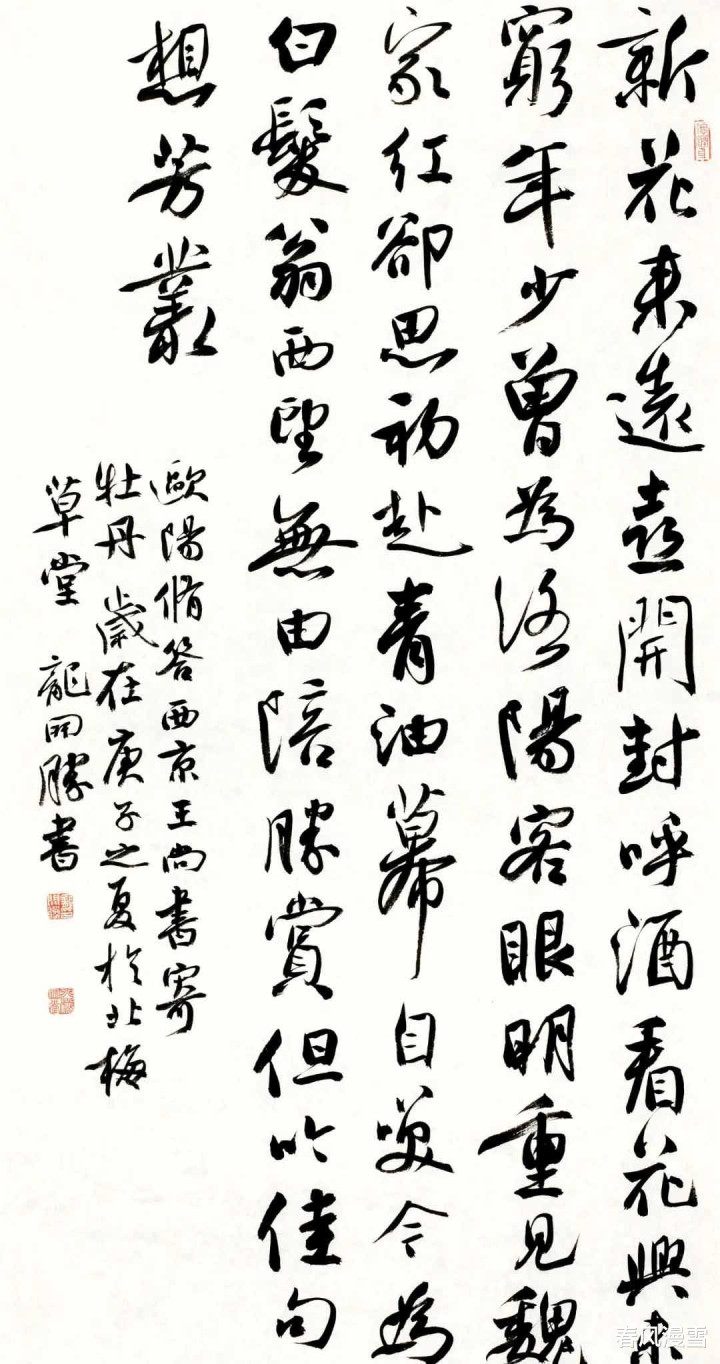 新花来遠喜開封呼酒看花興未
窮年少曾為洛陽客眼明重見魏
家紅卻思初赴青油幕自笑今為
白髮翁西望無由陪勝賞但吟佳句
想芳叢
歐陽脩答西京王尚書寄
牡丹 歲在庚子之夏於北梅
草堂 龍開勝書
春风漫雪